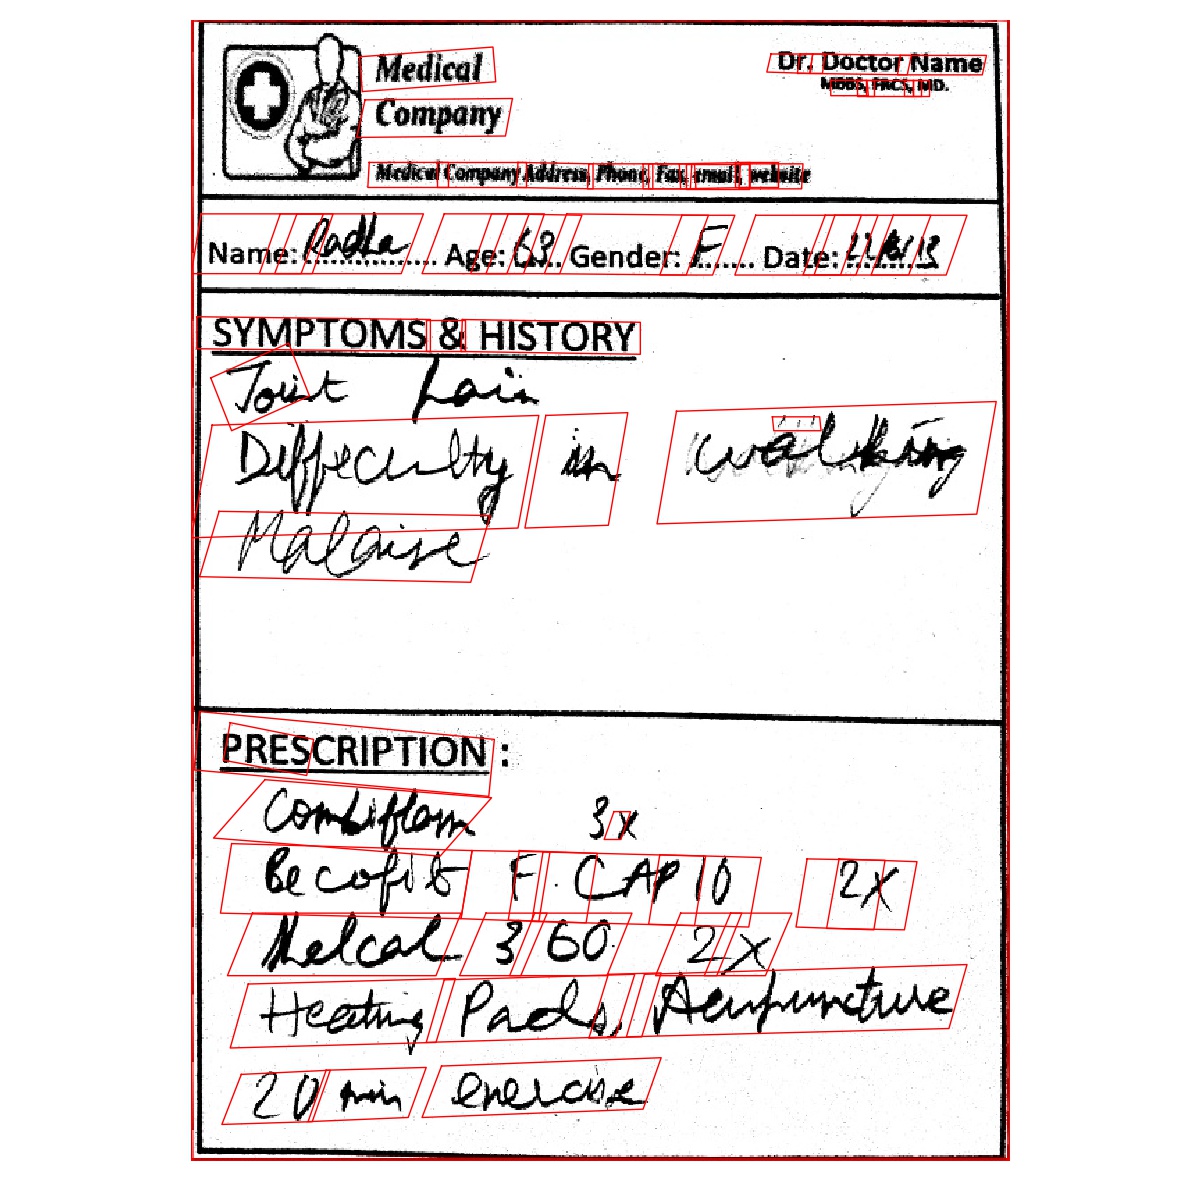 Medical
Company
Dr. Doctor Name
MBBS, FRCS, MD.
Medical Company Address, Phone, Fax, email, website
Name: Radha Age: 63 Gender: F Date:
SYMPTOMS & HISTORY
Joint Pain
Difficulty in walking
Malaise
PRESCRIPTION :
Combiflam 3x
Becofit F. CAP 10 2X
Melcal 3 60 2X
Heating Pads, Acupuncture
20 min exercise